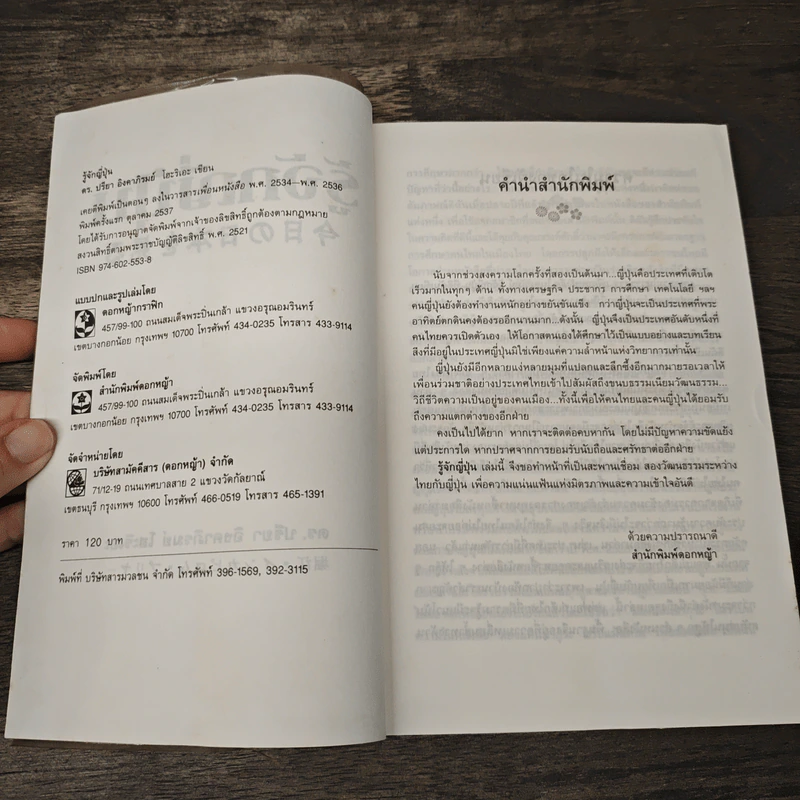 รู้จักญี่ปุ่น
ดร. ปรียา อิงคาภิรมย์ โฮะริเอะ เขียน
เคยตีพิมพ์เป็นตอนๆ ลงในวารสารเพื่อนหนังสือ พ.ศ. 2534—พ.ศ. 2536
พิมพ์ครั้งแรก ตุลาคม 2537
โดยได้รับการอนุญาตจัดพิมพ์จากเจ้าของลิขสิทธิ์ถูกต้องตามกฎหมาย
สงวนสิทธิ์ตามพระราชบัญญัติลิขสิทธิ์ พ.ศ. 2521
ISBN 974-602-553-8
แบบปกและรูปเล่มโดย
ดอกหญ้ากราฟิก
457/99-100 ถนนสมเด็จพระปิ่นเกล้า แขวงอรุณอมรินทร์
เขตบางกอกน้อย กรุงเทพฯ 10700 โทรศัพท์ 434-0235 โทรสาร 433-9114
จัดพิมพ์โดย
สำนักพิมพ์ดอกหญ้า
457/99-100 ถนนสมเด็จพระปิ่นเกล้า แขวงอรุณอมรินทร์
เขตบางกอกน้อย กรุงเทพฯ 10700 โทรศัพท์ 434-0235 โทรสาร 433-9114
จัดจำหน่ายโดย
บริษัทสามัคคีสาร (ดอกหญ้า) จำกัด
71/12-19 ถนนเทศบาลสาย 2 แขวงวัดกัลยาณ์
เขตธนบุรี กรุงเทพฯ 10600 โทรศัพท์ 466-0519 โทรสาร 465-1391
ราคา 120 บาท
พิมพ์ที่ บริษัทสารมวลชน จำกัด โทรศัพท์ 396-1569, 392-3115
คำนำสำนักพิมพ์
นับจากช่วงสงครามโลกครั้งที่สองเป็นต้นมา...ญี่ปุ่นคือประเทศที่เติบโต
เร็วมากในทุกๆ ด้าน ทั้งทางเศรษฐกิจ ประชากร การศึกษา เทคโนโลยี ฯลฯ
คนญี่ปุ่นยังต้องทำงานหนักอย่างขยันขันแข็ง กว่าญี่ปุ่นจะเป็นประเทศที่พระ
อาทิตย์ตกดินคงต้องรออีกนานมาก...ดังนั้น ญี่ปุ่นจึงเป็นประเทศอันดับหนึ่งที่
คนไทยควรเปิดตัวเอง ให้โอกาสตนเองได้ศึกษาไว้เป็นแบบอย่างและบทเรียน
สิ่งที่มีอยู่ในประเทศญี่ปุ่นมิใช่เพียงแค่ความล้ำหน้าแห่งวิทยาการเท่านั้น
ญี่ปุ่นยังมีอีกหลายแง่หลายมุมที่แปลกและลึกซึ้งอีกมากมายรอเวลาให้
เพื่อนร่วมชาติอย่างประเทศไทยเข้าไปสัมผัสถึงขนบธรรมเนียมวัฒนธรรม...
วิถีชีวิตความเป็นอยู่ของคนเมือง...ทั้งนี้เพื่อให้คนไทยและคนญี่ปุ่นได้ยอมรับ
ถึงความแตกต่างของอีกฝ่าย
คงเป็นไปได้ยาก หากเราจะติดต่อคบหากัน โดยไม่มีปัญหาความขัดแย้ง
แต่ประการใด หากปราศจากการยอมรับนับถือและศรัทธาต่ออีกฝ่าย
รู้จักญี่ปุ่น เล่มนี้ จึงขอทำหน้าที่เป็นสะพานเชื่อม สองวัฒนธรรมระหว่าง
ไทยกับญี่ปุ่น เพื่อความแน่นแฟ้นแห่งมิตรภาพและความเข้าใจอันดี
ด้วยความปรารถนาดี
สำนักพิมพ์ดอกหญ้า